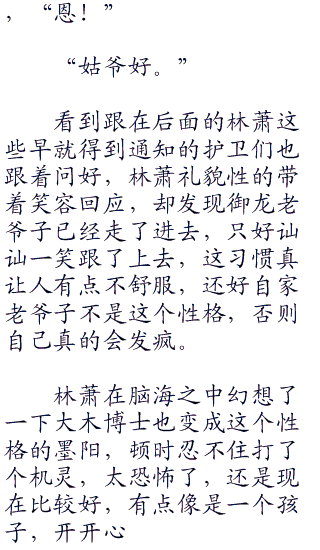 ，“恩！”
“姑爷好。”
看到跟在后面的林萧这
些早就得到通知的护卫们也
跟着问好，林萧礼貌性的带
着笑容回应，却发现御龙老
爷子已经走了进去，只好讪
讪一笑跟了上去，这习惯真
让人有点不舒服，还好自家
老爷子不是这个性格，否则
自己真的会发疯。
林萧在脑海之中幻想了
一下大木博士也变成这个性
格的墨阳，顿时忍不住打了
个机灵，太恐怖了，还是现
在比较好，有点像是一个孩
子，开开心